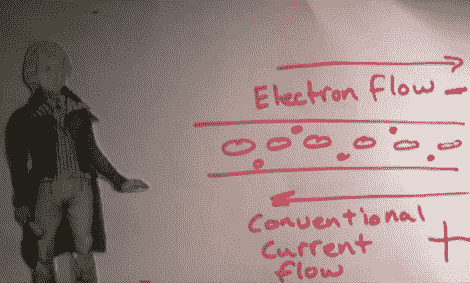 Electron flow -
Conventional
Current
flow
+